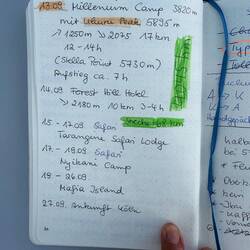 13.09. Millenium Camp 3820m
mit Uhuru Peak 5895m
↗ 1250m ↘ 2075 17km
12-14h
(Stella Point 5730m)
Aufstieg ca. 7h
14.09. Forest Hill Hotel
↘ 2180m 10km 3-4h
15. - 17.09. Safari
Tarangire Safari Lodge
17. - 19.09. Safari
Nyikani Camp
19. - 26.09.
Mafia Island
27.09. Ankunft Köln